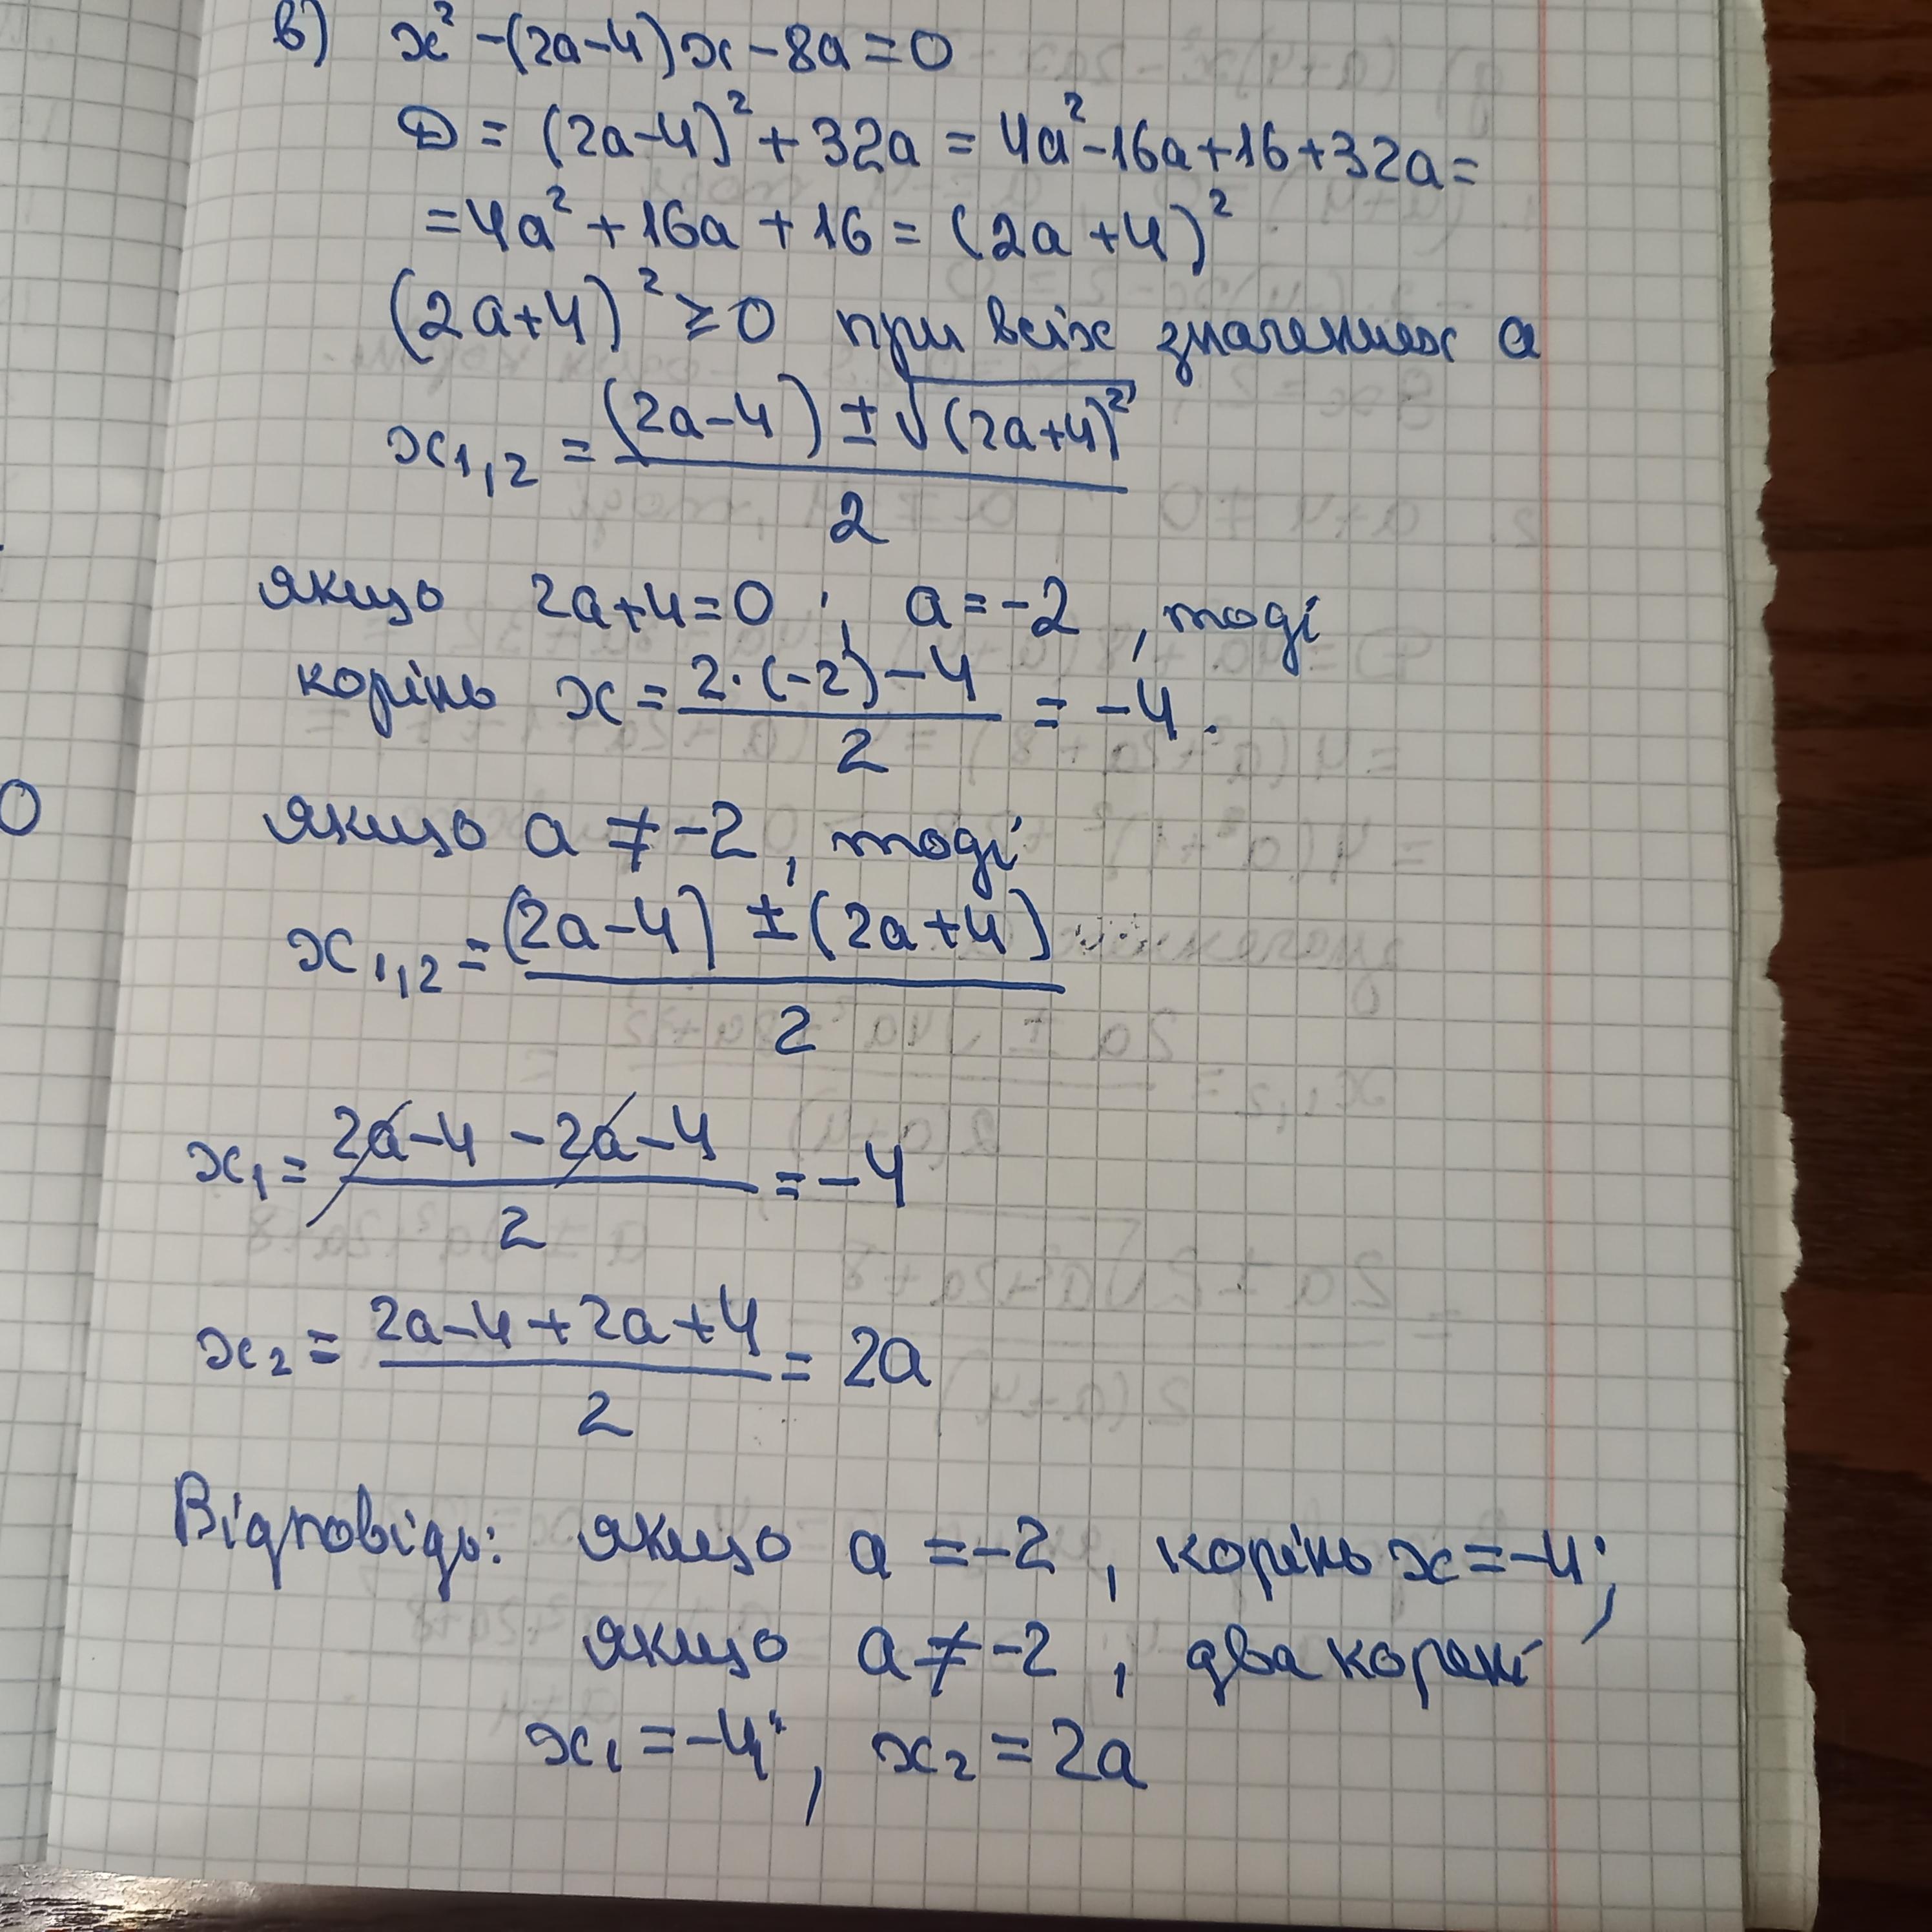 в) x² - (2a-4)x - 8a = 0
D = (2a-4)² + 32a = 4a² - 16a + 16 + 32a =
= 4a² + 16a + 16 = (2a+4)²
(2a+4)² ≥ 0 при всіх значеннях a
x₁,₂ = ((2a-4) ± √(2a+4)²) / 2
якщо 2a+4=0; a=-2, тоді
корінь x = (2·(-2)-4) / 2 = -4.
якщо a ≠ -2, тоді
x₁,₂ = ((2a-4) ± (2a+4)) / 2
x₁ = (2a-4-2a-4) / 2 = -4
x₂ = (2a-4+2a+4) / 2 = 2a
Відповідь: якщо a = -2, корінь x = -4;
якщо a ≠ -2, два корені
x₁ = -4; x₂ = 2a
0